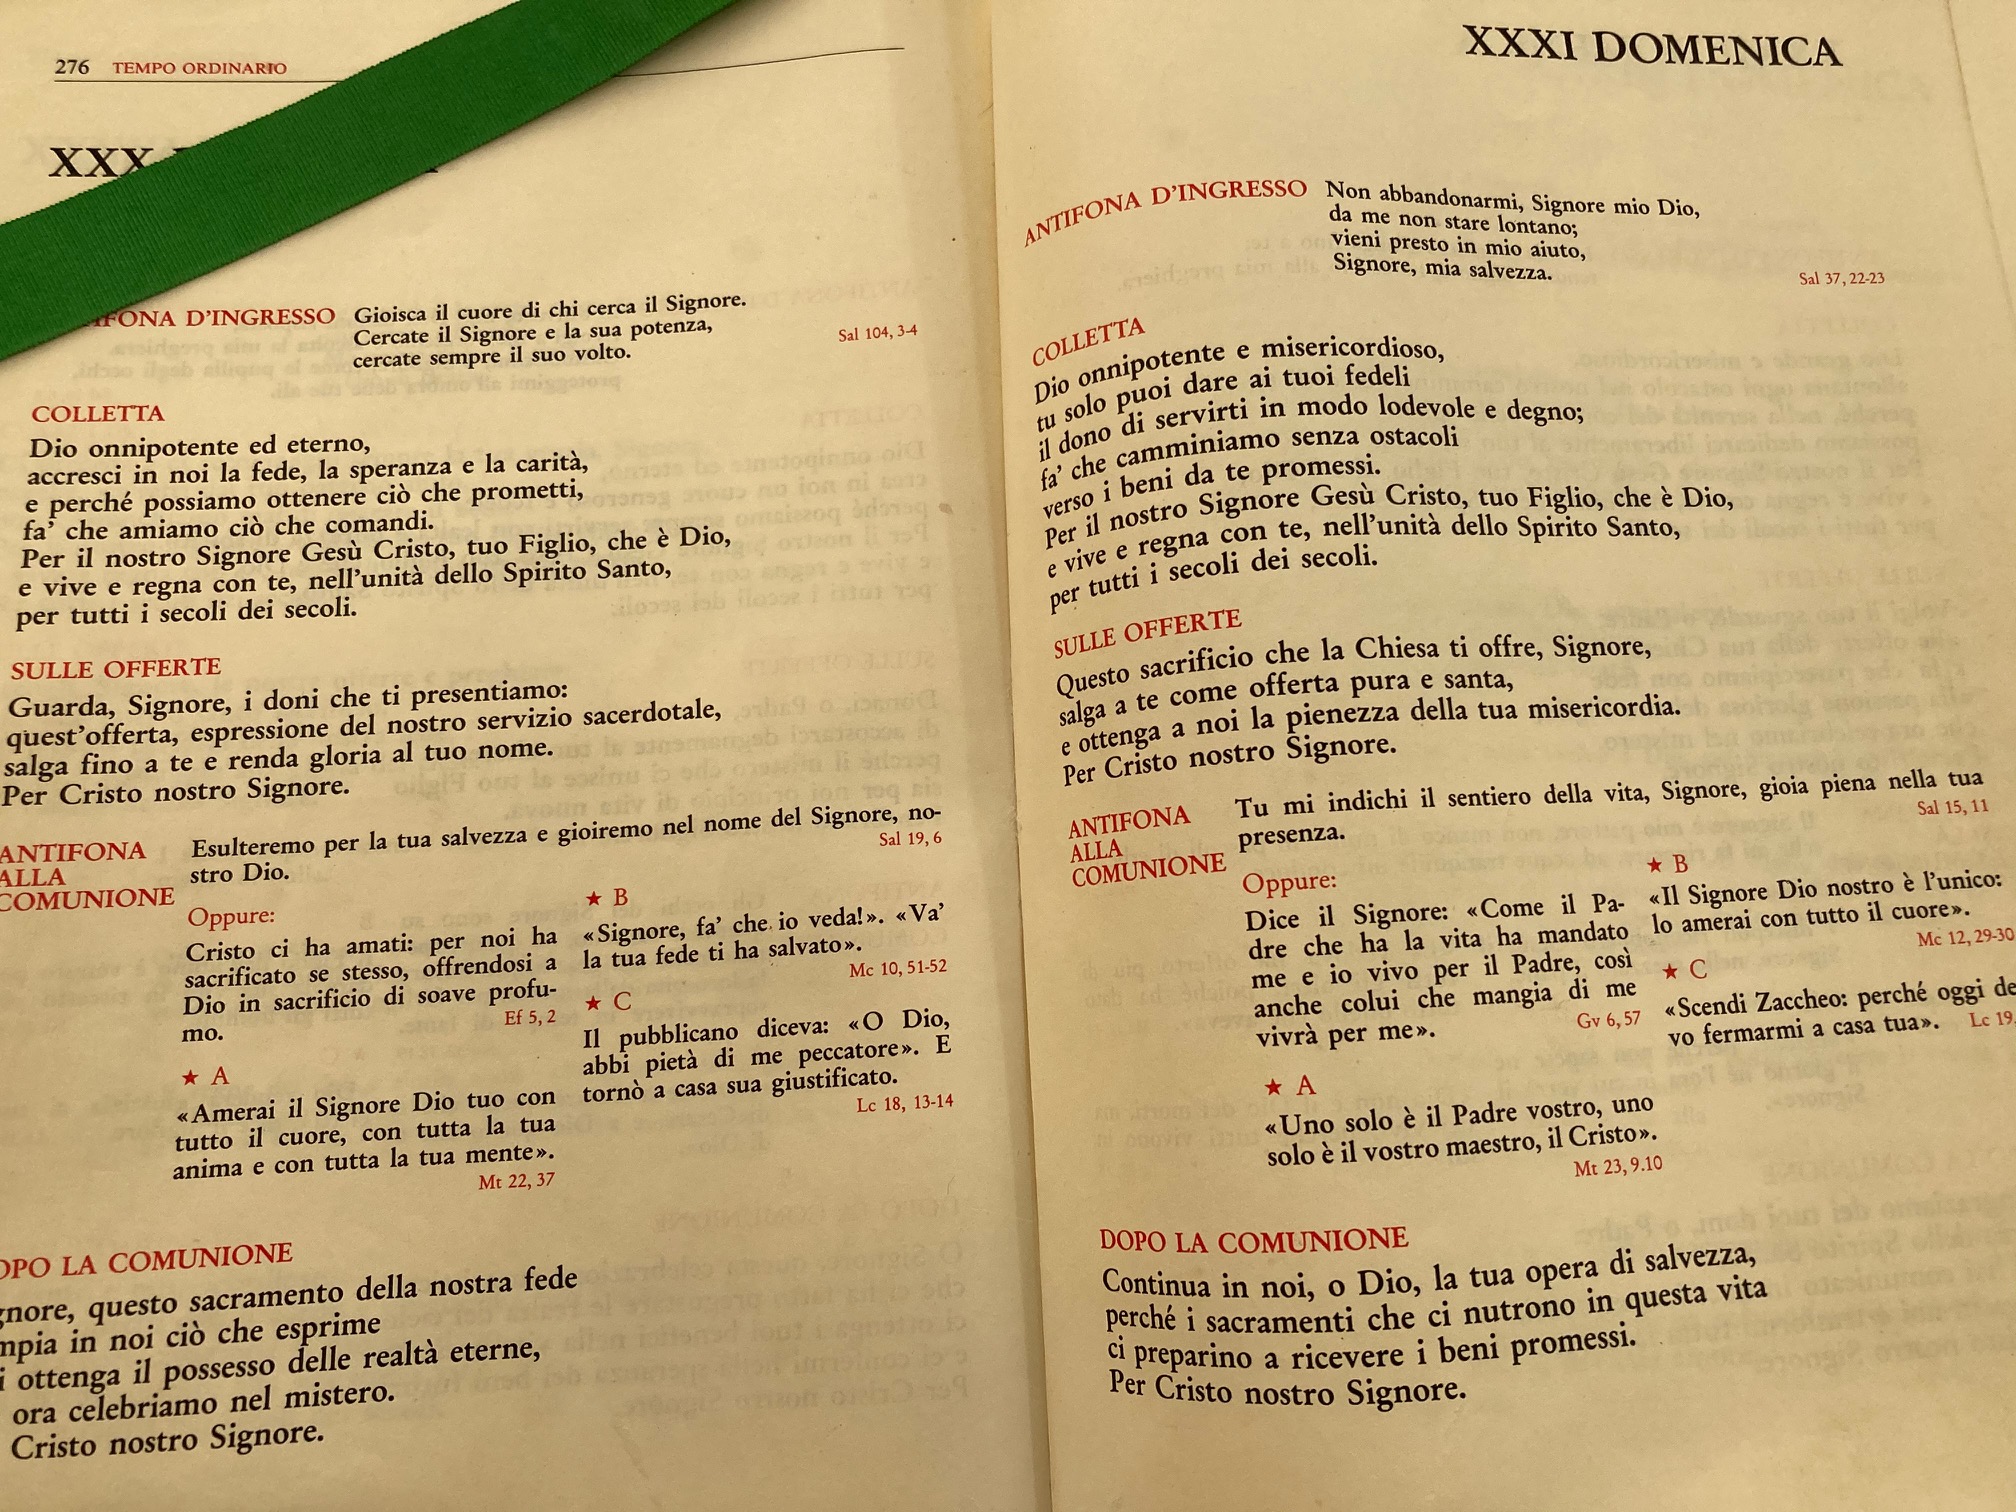 276 TEMPO ORDINARIO
XXX
D'INGRESSO Gioisca il cuore di chi cerca il Signore.
Cercate il Signore e la sua potenza,
cercate sempre il suo volto.
Sal 104, 3-4
COLLETTA
Dio onnipotente ed eterno,
accresci in noi la fede, la speranza e la carità,
e perché possiamo ottenere ciò che prometti,
fa' che amiamo ciò che comandi.
Per il nostro Signore Gesù Cristo, tuo Figlio, che è Dio,
e vive e regna con te, nell'unità dello Spirito Santo,
per tutti i secoli dei secoli.
SULLE OFFERTE
Guarda, Signore, i doni che ti presentiamo:
quest'offerta, espressione del nostro servizio sacerdotale,
salga fino a te e renda gloria al tuo nome.
Per Cristo nostro Signore.
ANTIFONA
ALLA
COMUNIONE
Esulteremo per la tua salvezza e gioiremo nel nome del Signore, no-
stro Dio.
Sal 19, 6
Oppure:
Cristo ci ha amati: per noi ha
sacrificato se stesso, offrendosi a
Dio in sacrificio di soave profu-
mo.
Ef 5, 2
★ A
«Amerai il Signore Dio tuo con
tutto il cuore, con tutta la tua
anima e con tutta la tua mente».
Mt 22, 37
★ B
«Signore, fa' che io veda!». «Va'
la tua fede ti ha salvato».
Mc 10, 51-52
★ C
Il pubblicano diceva: «O Dio,
abbi pietà di me peccatore». E
tornò a casa sua giustificato.
Lc 18, 13-14
OPO LA COMUNIONE
gnore, questo sacramento della nostra fede
mpia in noi ciò che esprime
i ottenga il possesso delle realtà eterne,
ora celebriamo nel mistero.
Cristo nostro Signore.
XXXI DOMENICA
ANTIFONA D'INGRESSO Non abbandonarmi, Signore mio Dio,
da me non stare lontano;
vieni presto in mio aiuto,
Signore, mia salvezza.
Sal 37, 22-23
COLLETTA
Dio onnipotente e misericordioso,
tu solo puoi dare ai tuoi fedeli
il dono di servirti in modo lodevole e degno;
fa' che camminiamo senza ostacoli
verso i beni da te promessi.
Per il nostro Signore Gesù Cristo, tuo Figlio, che è Dio,
e vive e regna con te, nell'unità dello Spirito Santo,
per tutti i secoli dei secoli.
SULLE OFFERTE
Questo sacrificio che la Chiesa ti offre, Signore,
salga a te come offerta pura e santa,
e ottenga a noi la pienezza della tua misericordia.
Per Cristo nostro Signore.
ANTIFONA
ALLA
COMUNIONE
Tu mi indichi il sentiero della vita, Signore, gioia piena nella tua
presenza.
Sal 15, 11
Oppure:
Dice il Signore: «Come il Pa-
dre che ha la vita ha mandato
me e io vivo per il Padre, così
anche colui che mangia di me
vivrà per me».
Gv 6, 57
★ A
«Uno solo è il Padre vostro, uno
solo è il vostro maestro, il Cristo».
Mt 23, 9.10
★ B
«Il Signore Dio nostro è l'unico:
lo amerai con tutto il cuore».
Mc 12, 29-30
★ C
«Scendi Zaccheo: perché oggi de
vo fermarmi a casa tua».
Lc 19,
DOPO LA COMUNIONE
Continua in noi, o Dio, la tua opera di salvezza,
perché i sacramenti che ci nutrono in questa vita
ci preparino a ricevere i beni promessi.
Per Cristo nostro Signore.